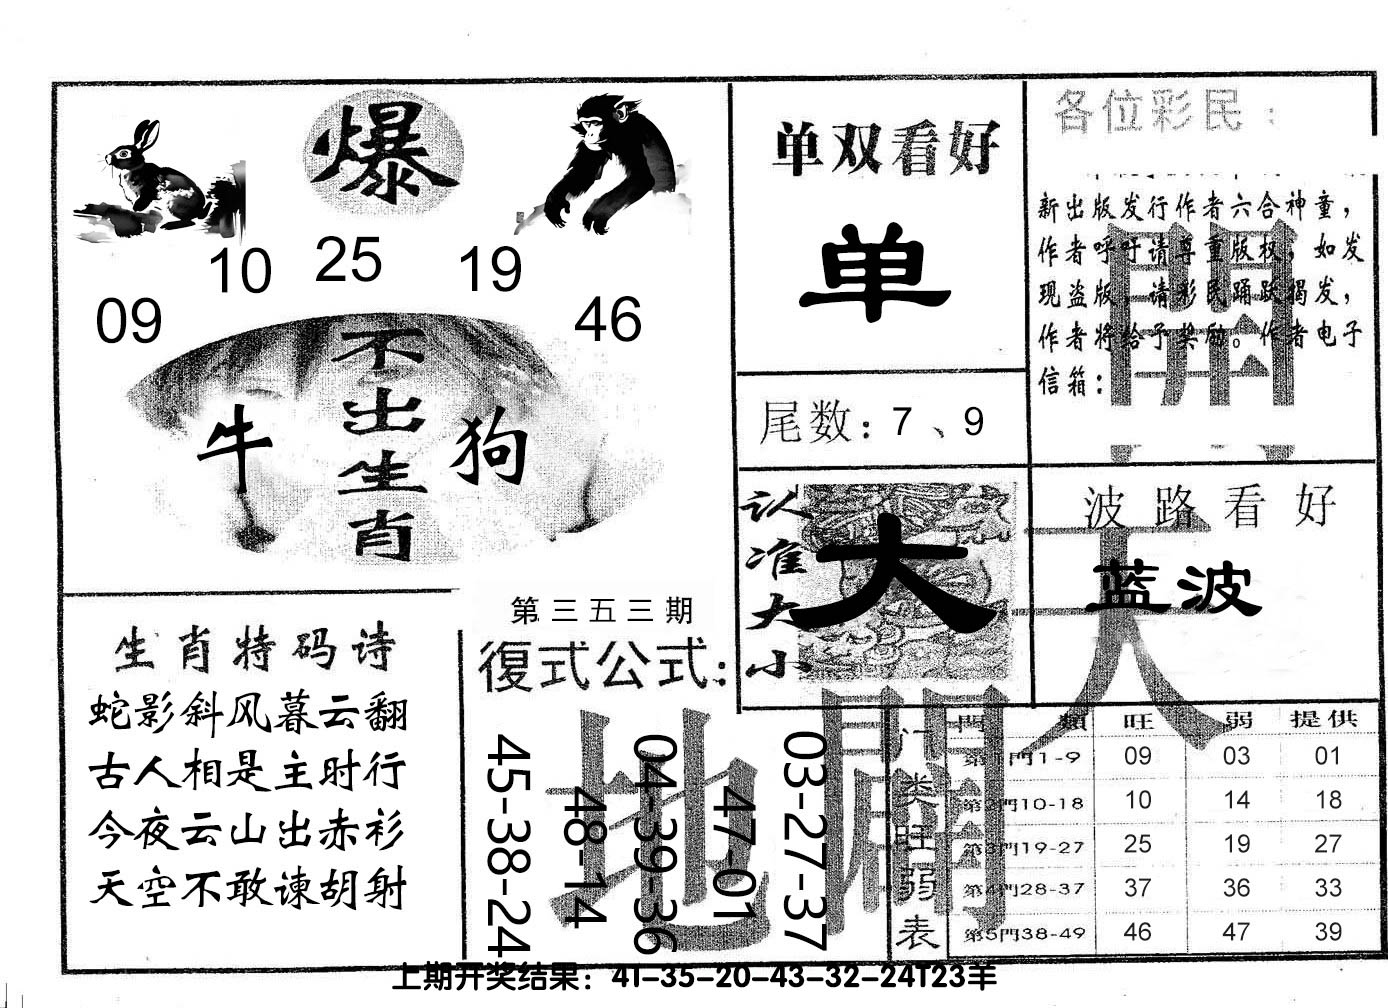 爆
10 25 19
09 46
不出生肖
牛 狗
单双看好
单
尾数：7、9
各位彩民：
新出版发行作者六合神童，
作者呼吁请尊重版权，如发
现盗版，请彩民踊跃揭发，
作者将给予奖励。作者电子
信箱：
認准大小
大
波路看好
蓝波
開
天
地
闢
生肖特码诗
蛇影斜风暮云翻
古人相是主时行
今夜云山出赤衫
天空不敢谏胡射
第三五三期
復式公式：
45-38-24
48-14
04-39-36
47-01
03-27-37
门类旺弱表
門類 旺 弱 提供
第1門1-9 09 03 01
第2門10-18 10 14 18
第3門19-27 25 19 27
第4門28-37 37 36 33
第5門38-49 46 47 39
上期开奖结果：41-35-20-43-32-24T23羊